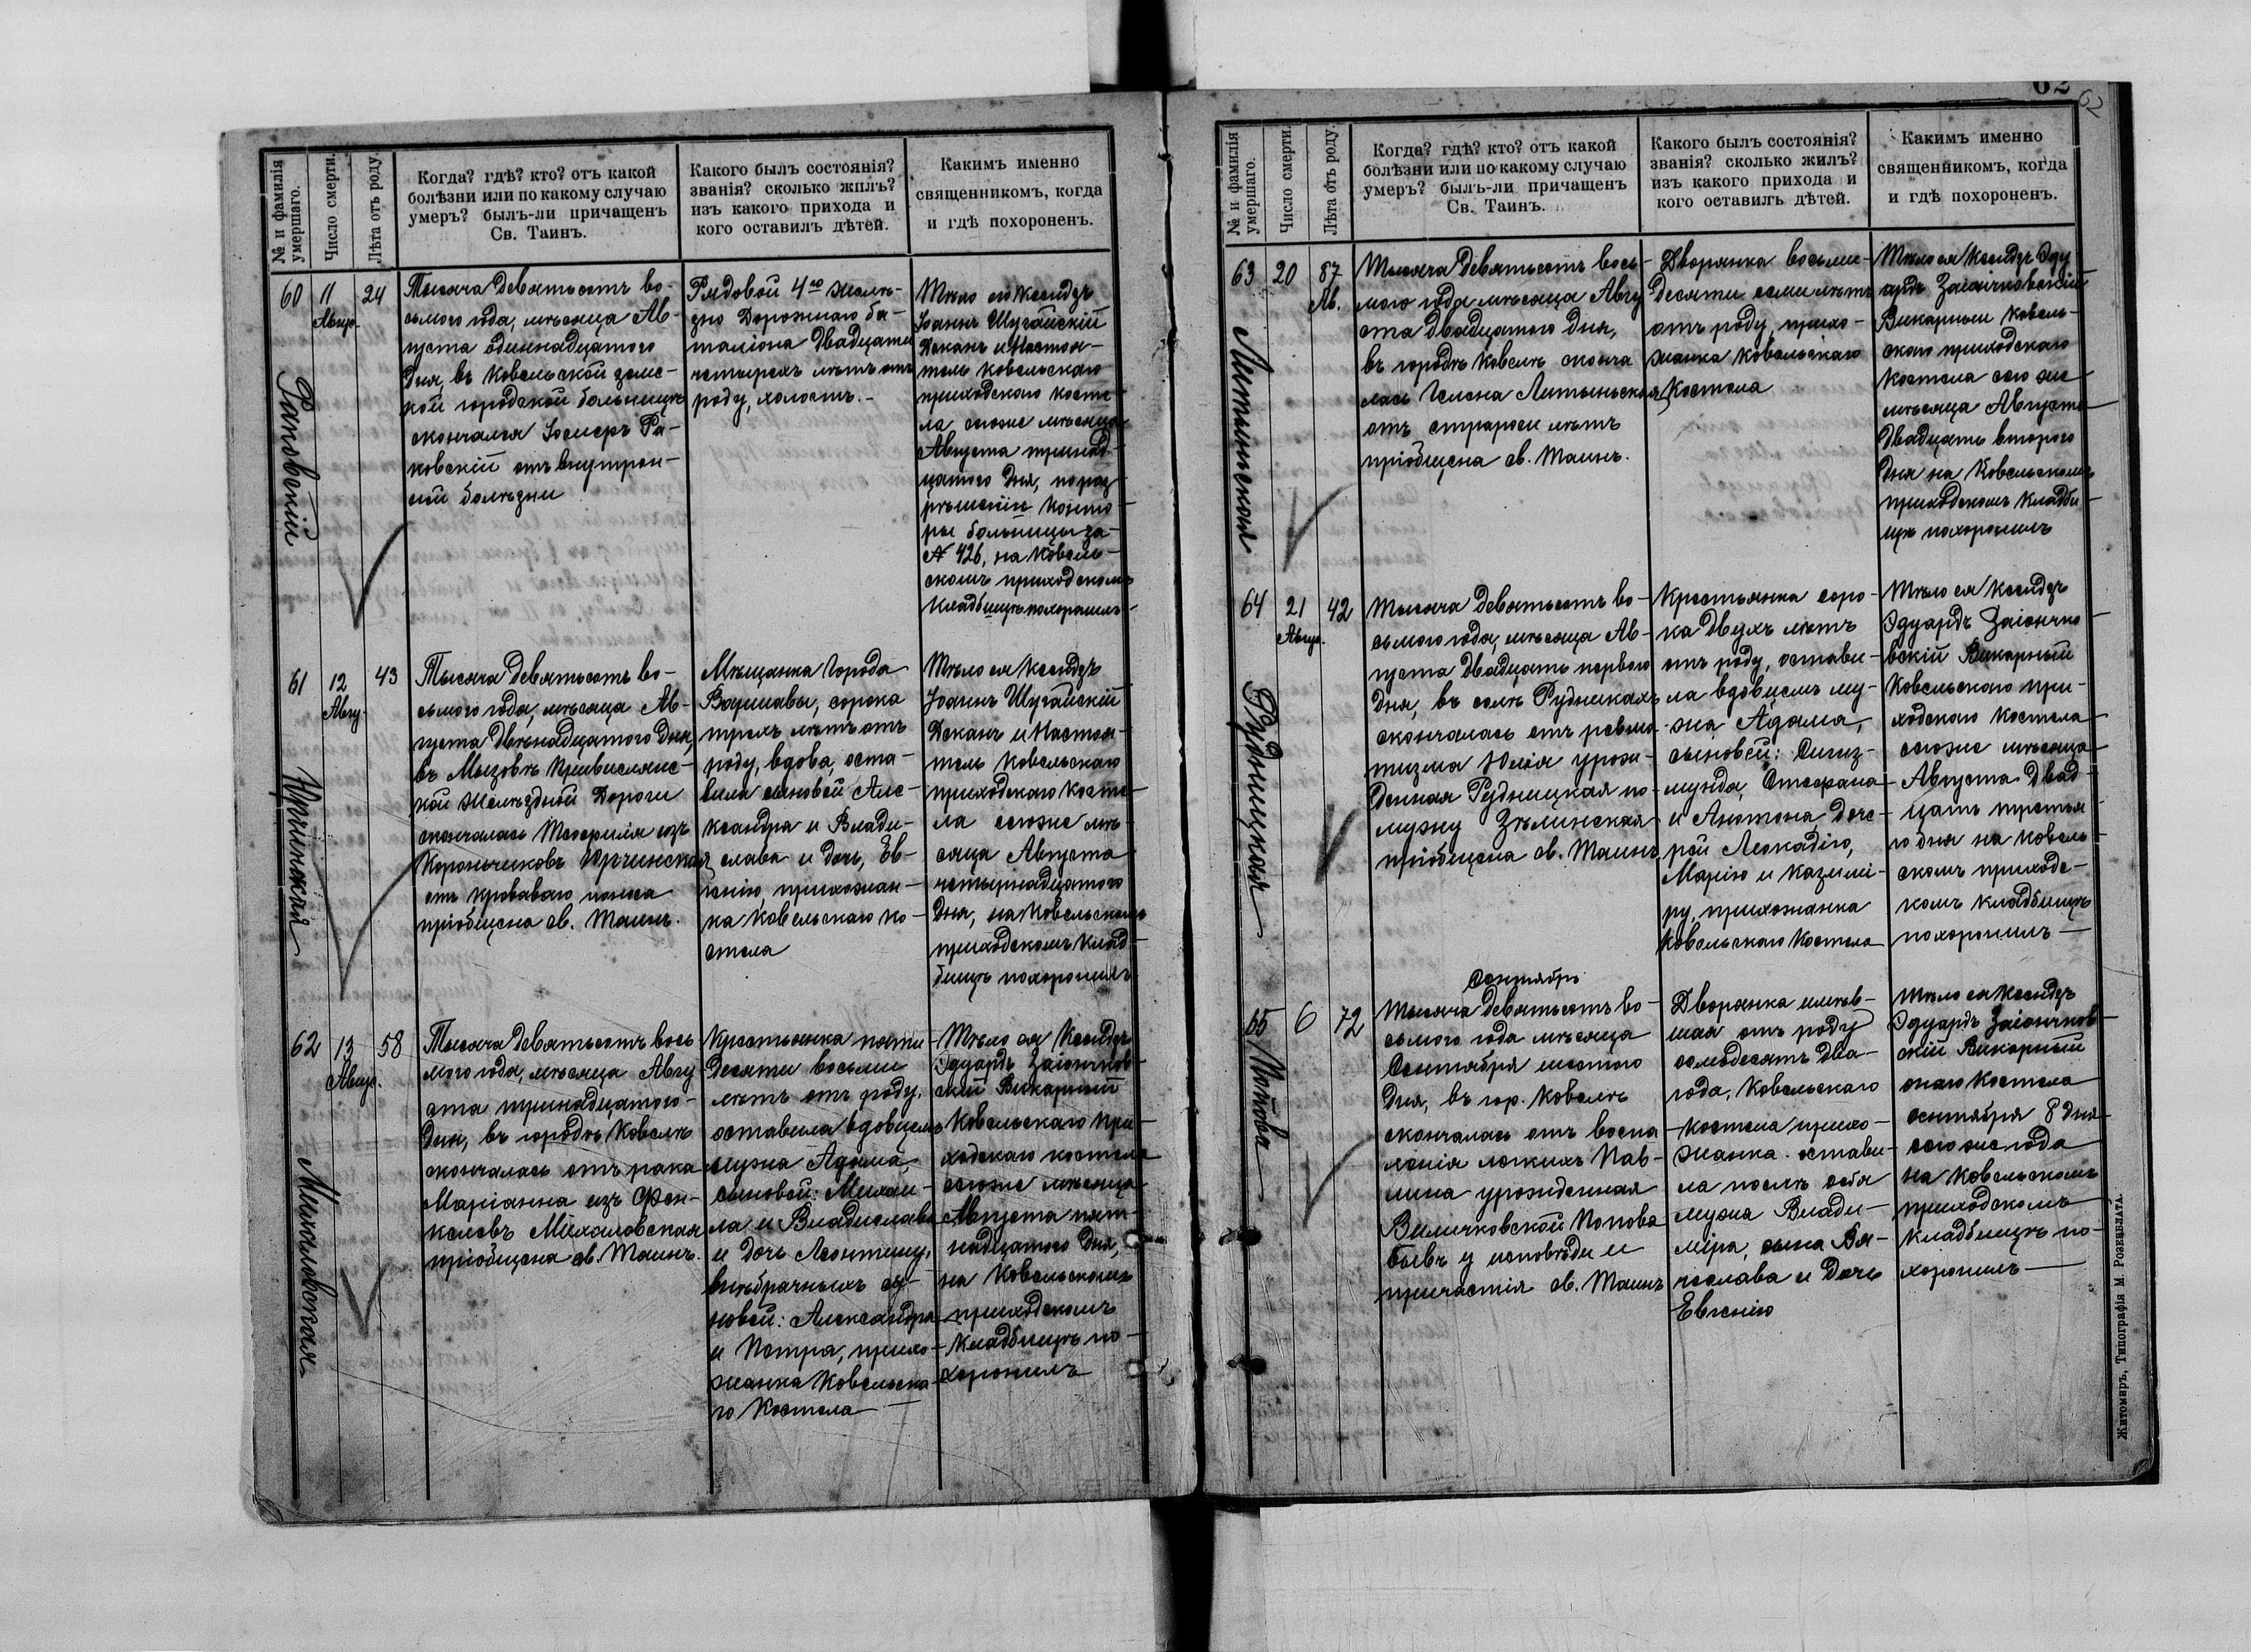 № и фамилія
умершаго.
Число смерти.
Лѣта отъ роду.
Когда? гдѣ? кто? отъ какой
болѣзни или по какому случаю
умеръ? былъ-ли причащенъ
Св. Таинъ.
Какого былъ состоянія?
званія? сколько жилъ?
изъ какого прихода и
кого оставилъ дѣтей.
Какимъ именно
священникомъ, когда
и гдѣ похороненъ.
60
Раковскій
11
Авгус.
24
Тысяча девятьсотъ во-
сьмого года, мѣсяца Ав-
густа одиннадцатого
дня, въ Ковельской земс-
кой городской больницѣ
скончался Іосифъ Ра-
ковскій отъ внутрен-
ней болѣзни
Рядовой 4го желѣ-
зно дорожнаго ба-
таліона двадцати
четырехъ лѣтъ отъ
роду, холостъ.-
Тѣло его Ксендзъ
Іоаннъ Шугайскій
Деканъ и Настоя-
тель Ковельскаго
приходскаго Косте-
ла сегоже мѣсяца
Августа тринад-
цатого дня, по раз-
рѣшенію Конто-
ры больницы за
№ 426, на Ковель-
скомъ приходскомъ
Кладбищѣ похоронилъ-
61
Юрчинская
12
Авгу.
43
Тысяча девятьсотъ во-
сьмого года, мѣсяца Ав-
густа двѣнадцатого дня,
въ Мызовѣ Привислянс-
кой желѣздной дороги
скончалась Теофилія изъ
Корончиковъ Юрчинская
отъ кроваваго поноса
пріобщена св. Таинъ.
Мѣщанка города
Варшавы, сорока
трехъ лѣтъ отъ
роду, вдова, оста-
вила сыновей Але-
ксандра и Влади-
слава и дочь, Ев-
генію, прихожан-
ка Ковельскаго ко-
стела
Тѣло ея Ксендзъ
Іоаннъ Шугайскій
Деканъ и Настоя-
тель Ковельскаго
приходскаго Косте-
ла сегоже мѣ-
сяца Августа
четырнадцатого
дня, на Ковельскомъ
приходскомъ Клад-
бищѣ похоронилъ
62
Михаловская
13
Авгус.
58
Тысяча девятьсотъ вось
мого года, мѣсяца Авгу
ста тринадцатого
дня, въ городѣ Ковелѣ
скончалась отъ рака
Маріанна изъ Фен-
келевъ Михаловская
пріобщена св. Таинъ.
Крестьянка пяти-
десяти восьми
лѣтъ отъ роду,
оставила вдовцемъ
мужа Адама,
сыновей: Михаи-
ла и Владислава
и дочь Леонтину,
внѣбрачныхъ сы-
новей: Александра
и Петра, прихо-
жанка Ковельска-
го Костела
Тѣло ея Ксендзъ
Эдуардъ Заіончков-
скій Викарный
Ковельскаго при-
ходскаго костела
сегоже мѣсяца
Августа пят-
надцатого дня,
на Ковельскомъ
приходскомъ
Кладбищѣ по-
хоронилъ
62
62
№ и фамилія
умершаго.
Число смерти.
Лѣта отъ роду.
Когда? гдѣ? кто? отъ какой
болѣзни или по какому случаю
умеръ? былъ-ли причащенъ
Св. Таинъ.
Какого былъ состоянія?
званія? сколько жилъ?
изъ какого прихода и
кого оставилъ дѣтей.
Какимъ именно
священникомъ, когда
и гдѣ похороненъ.
63
Литыньская
20
Ав.
87
Тысяча девятьсотъ вось-
мого года мѣсяца Авгу
ста двадцатого дня,
въ городѣ Ковелѣ сконча
лась Гелена Литыньская
отъ старости лѣтъ
пріобщена св. Таинъ.
Дворянка восьми-
десяти семи лѣтъ
отъ роду, прихо-
жанка Ковельскаго
Костела
Тѣло ея Ксендзъ Эду
ардъ Заіончковскій
Викарный Ковель-
скаго приходскаго
Костела сего же
мѣсяца Августа
двадцать второго
дня на Ковельскомъ
приходскомъ Кладби-
щѣ похоронилъ
64
Рудницкая
21
Авгус.
42
Тысяча девятьсотъ во-
сьмого года, мѣсяца Ав-
густа двадцать первого
дня, въ селѣ Рудникахъ
скончалась отъ ревма-
тизма Юлія урож-
денная Рудницкая по-
мужу Зѣлинская
пріобщена св. Таинъ
Крестьянка соро-
ка двухъ лѣтъ
отъ роду, остави-
ла вдовцемъ му-
жа Адама,
сыновей: Сигиз-
мунда, Стефана
и Антона доче-
рей Леокадію,
Марію и Казими-
ру, прихожанка
Ковельскаго Костела
Тѣло ея Ксендзъ
Эдуардъ Заіончко-
вскій Викарный
Ковельскаго при-
ходскаго Костела
сегоже мѣсяца
Августа двад-
цать третья-
го дня на Ковель-
скомъ приходс-
комъ кладбищѣ
похоронилъ
65
Попова
6
72
Сентябрь
Тысяча девятьсотъ во-
сьмого года мѣсяца
Сентября шестого
дня, въ гор. Ковелѣ
скончалась отъ воспа-
ленія легкихъ Пав-
лина урожденная
Виличковской Попова
бывъ у исповѣди и
причастія св. Таинъ
Дворянка имѣв-
шая отъ роду
семьдесятъ два
года, Ковельскаго
костела прихо-
жанка. остави-
ла послѣ себя
мужа Влади-
міра, сына Вя-
чеслава и дочь
Евгенію
Тѣло ея Ксендзъ
Эдуардъ Заіончков-
скій Викарный
онаго Костела
сентября 8 дня
сего же года
на Ковельскомъ
приходскомъ
Кладбищѣ по-
хоронилъ
Житомиръ, Типографія М. Розенблата.